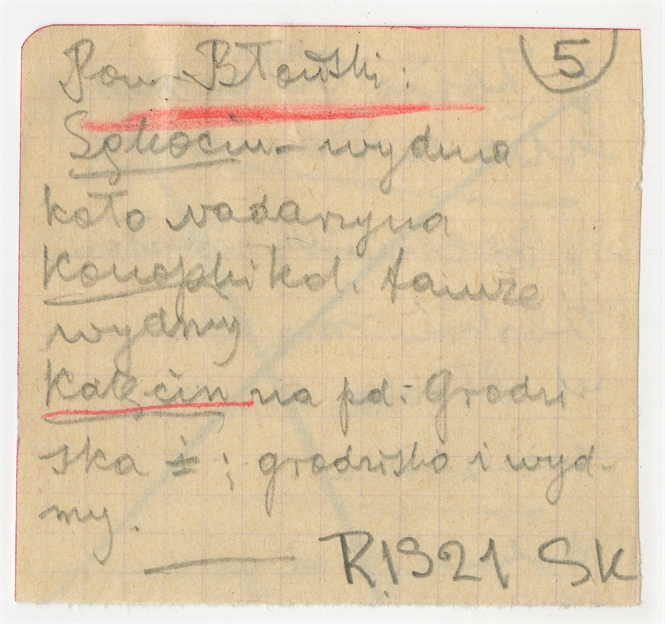 5
Pow. Błoński:
Sękocin – wydma
koło nadarzyna
Konopki kol. tamże
wydmy
Kałęcin na pd. Grodzi
ska ± ; grodzisko i wyd-
my.
R.1921 SK